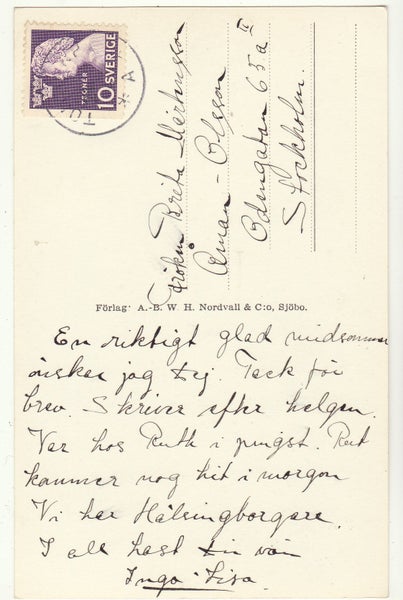 SVERIGE
10
TEGNÉR
Fröken Brita Mårtensson
Åman - Olsson
Odengatan 65 a II
Stockholm.
Förlag: A.-B. W. H. Nordvall & C:o, Sjöbo.
En riktigt glad midsommar
önskar jag Dej. Tack för
brev. Skriver efter helgen.
Var hos Ruth i pingst. Rut
kommer nog hit i morgon
Vi har Hälsingborgare.
I all hast Din vän
Inga-Lisa.